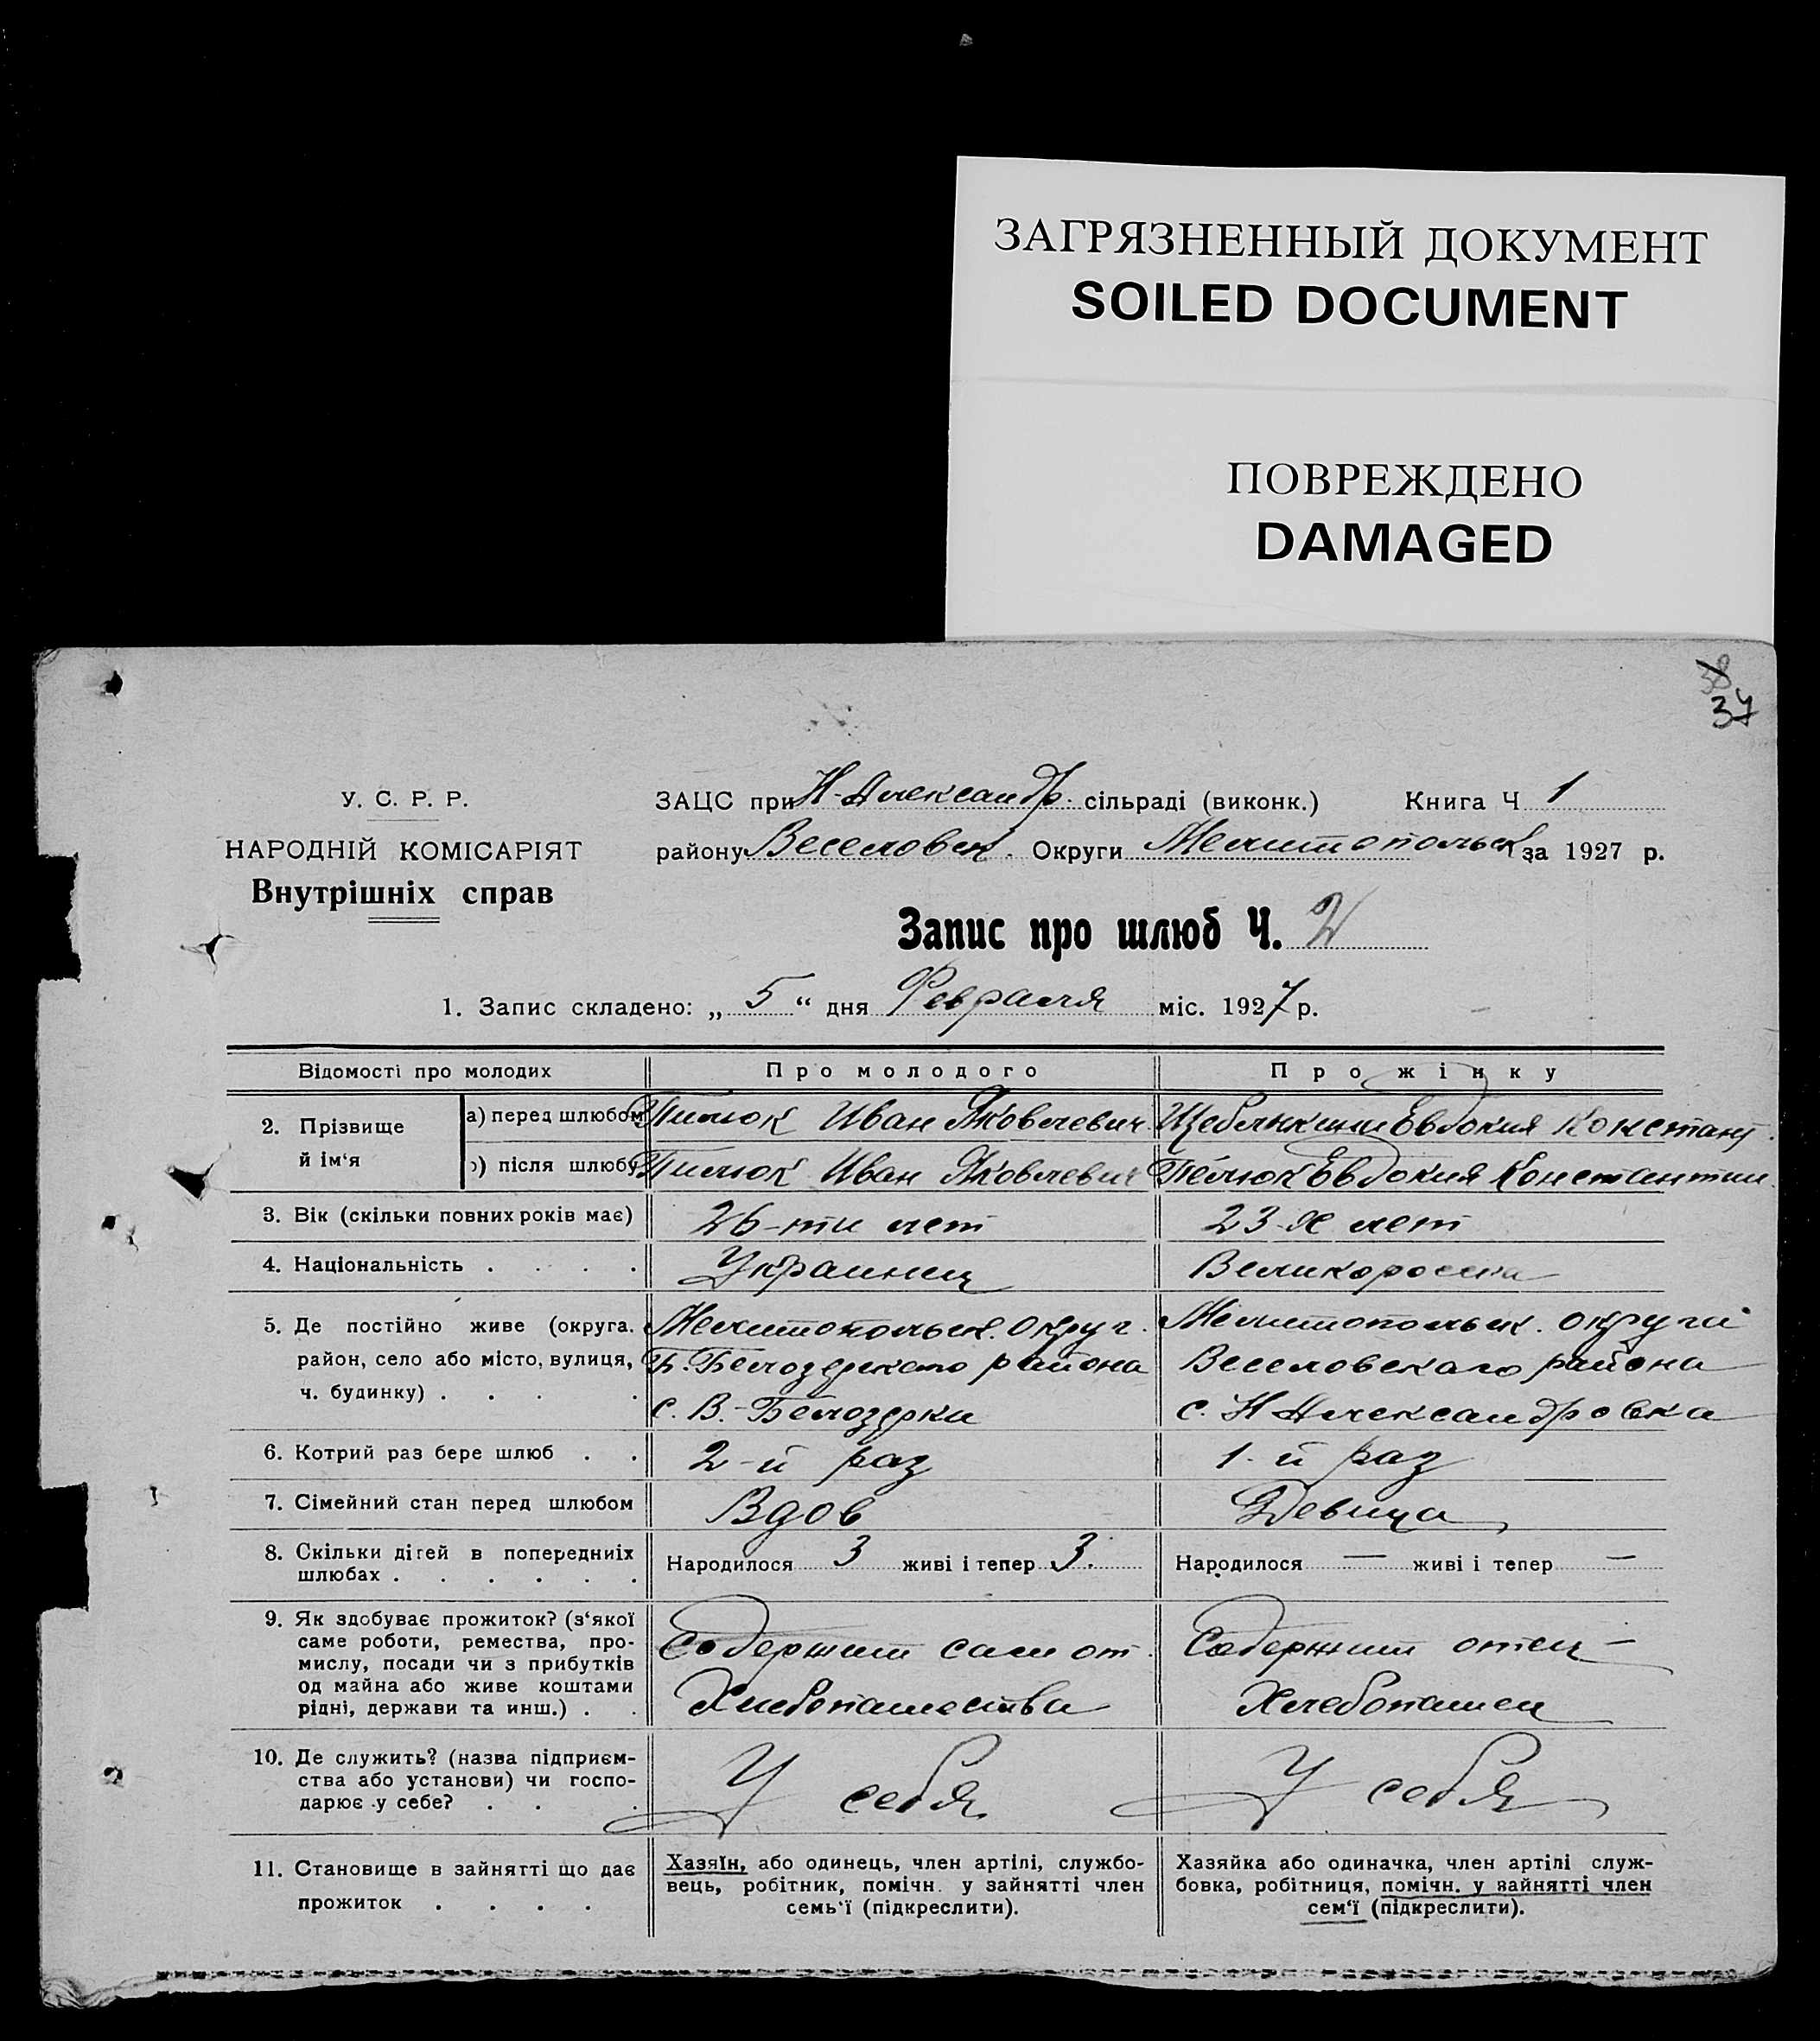 ЗАГРЯЗНЕННЫЙ ДОКУМЕНТ
SOILED DOCUMENT
ПОВРЕЖДЕНО
DAMAGED
38
34
У. С. Р. Р.
НАРОДНІЙ КОМІСАРІЯТ
Внутрішніх справ
ЗАЦС при Н-Александр. сільраді (виконк.) Книга Ч 1
району Веселовск. Округи Мелитопольск за 1927 р.
Запис про шлюб Ч. 2
1. Запис складено: „ 5 “ дня Февраля міс. 1927 р.
Відомості про молодих
Про молодого
Про жінку
2. Прізвище й ім‘я
а) перед шлюбом
Пилюк Иван Яковлевич
Евдокия Констант.
) після шлюбу
Пилюк Иван Яковлевич
Пелюк Евдокия Константин.
3. Вік (скільки повних років має)
26-ти лет
23-х лет
4. Національність . . . .
Украинец
Великоросска
5. Де постійно живе (округа.
район, село або місто, вулиця,
ч. будинку) . . . .
Мелитопольск. округ.
Б.-Белозерского района
с. В.-Белозерки
Мелитопольск. округи
Веселовскаго района
с. Н Александровка
6. Котрий раз бере шлюб . .
2-й раз
1-й раз
7. Сімейний стан перед шлюбом
Вдов
Девица
8. Скільки дітей в попередниіх
шлюбах . . . . . .
Народилося 3 живі і тепер 3.
Народилося — живі і тепер —
9. Як здобуває прожиток? (з‘якої
саме роботи, ремества, про-
мислу, посади чи з прибутків
од майна або живе коштами
рідні, держави та инш.) . .
Содержит сам от
Хлебопашества
Содержит отец —
Хлебопашец
10. Де служить? (назва підприєм-
ства або установи) чи госпо-
дарює у себе? . . .
У себя
У себя
11. Становище в зайнятті що дає
прожиток . . . .
Хазяїн, або одинець, член артілі, службо-
вець, робітник, помічн. у зайнятті член
семь‘ї (підкреслити).
Хазяйка або одиначка, член артілі служ-
бовка, робітниця, помічн. у зайнятті член
сем‘ї (підкреслити).